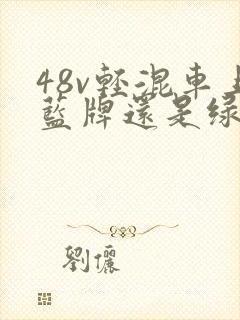 48v輕混車上
藍牌還是綠
劉儷